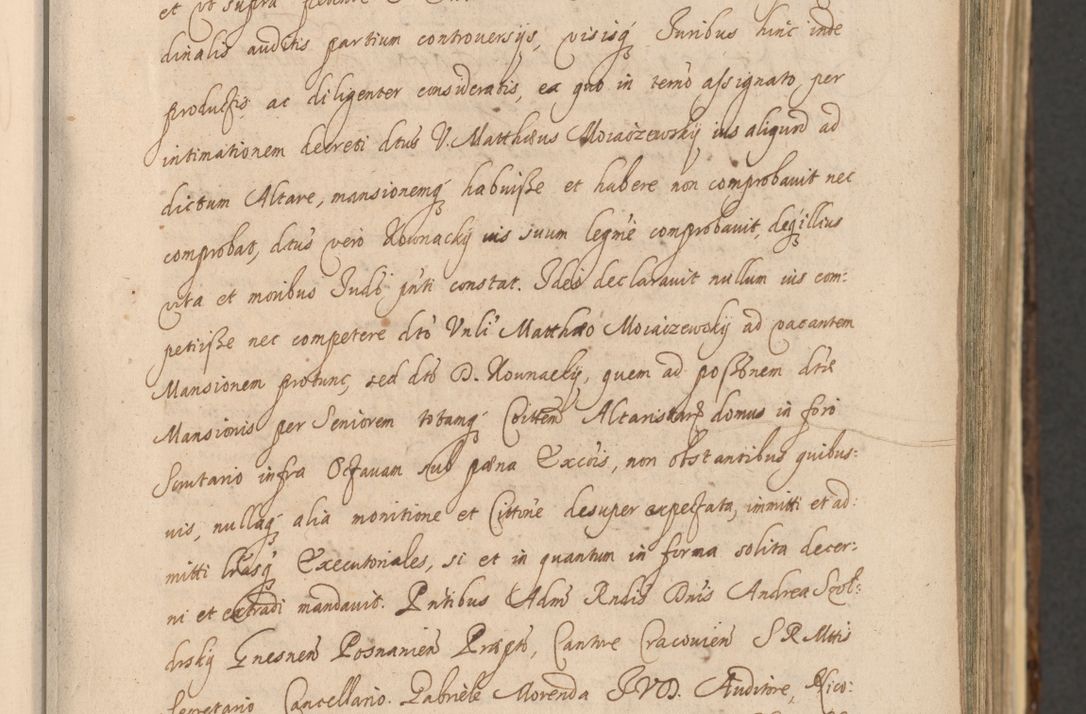 et ut supra
dinalis auditis partium controversijs, visisq́ Iuribus hinc inde
productis ac diligenter consideratis, ex quo in termō assignato, per
intimationem decreti dtus V. Matthæus Moiaiszewskij ius aliquod ad
dictum Altare, mansionemq́ habuisse et habere non comprobauit nec
comprobat, dtus vero Nownackij ius suum legmē comprobauit, deq́ illius
vita et moribus Iudō pñti constat. Ideo declarauit nullum ius com:
petijsse nec competere dtō Vnli Matthæo Moiaiszewskij ad vacantem
Mansionem protunc, sed dtō D. Nownackij, quem ad possōnem dtæ
Mansionis per Seniorem totamq́ Coittem Altaristarʒ domus in foro
Scrutario infra Octauam sub pæna Excōis, non obstantibus quibus:
uis, nullaq́ alia monitione et Cittōne desuper expectata, immitti et ad:
mitti lrasq́ Executoriales, si et in quantum in forma solita decer:
ni et extradi mandauit. Pntibus Adm Rndis Dnis Andrea Szol:
drskij Gnesnen Posnanien Præpto, Cantore Cracouien S R Mttis
Secretario Cancellario. Gabriele Morenda I V D. Auditore, Nico: